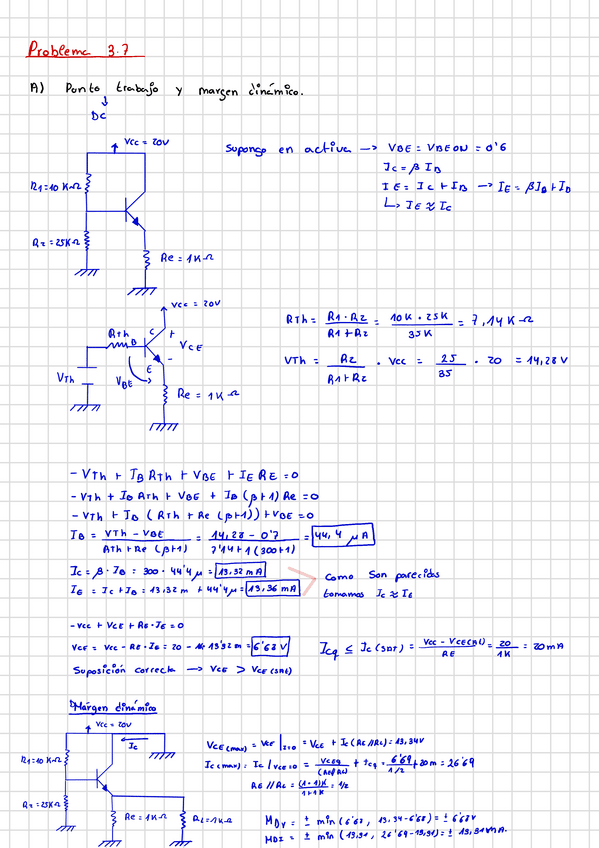 Problema 3.7
A) Punto trabajo y margen dinámico.
DC
Vcc = 20V
R1=10 KΩ
R2=25KΩ
Re = 1KΩ
Supongo en activa → VBE = VBEON = 0'6
IC = β IB
IE = IC + IB → IE = βIB + IB
↳ IE ≈ IC
Vcc = 20V
Rth
B
C
+
VCE
-
E
VTh
VBE
Re = 1KΩ
RTh = R1·R2 / R1+R2 = 10K · 25K / 35K = 7,14 KΩ
VTh = R2 / R1+R2 · Vcc = 25 / 35 · 20 = 14,28 V
- VTh + IB RTh + VBE + IE RE = 0
- VTh + IB RTh + VBE + IB (β+1) Re = 0
- VTh + IB (RTh + Re (β+1)) + VBE = 0
IB = VTh - VBE / RTh + Re (β+1) = 14,28 - 0'7 / 7'14 + 1 (300+1) = 44,4 μA
IC = β · IB = 300 · 44'4 μ = 13,32 mA
IE = IC + IB = 13,32 m + 44'4 μ = 13,36 mA
Como son parecidas
tomamos IC ≈ IE
- Vcc + VCE + RE · IE = 0
VCE = Vcc - RE · IE = 20 - 13'32 m = 6'68 V
Suposición correcta → VCE > VCE (SAt)
ICq ≤ IC (SAT) = Vcc - VCE(SAt) / RE = 20 / 1K = 20 mA
Márgen dinámico
Vcc = 20V
IC
R1=10 KΩ
R2=25KΩ
Re = 1KΩ
RL=1KΩ
VCE (max) = VCE | = VCE + IC (RE//RL) = 13,34V
IC (max) = IC | VCE=0 = VCEQ / (RE//RL) + ICQ = 6'69 / 1/2 + 20m = 26'69
RE // RL = (1·1)K / 1+1K = 1/2
MDV = ± min (6'68, 13,34-6'68) = ± 6'68V
MDI = ± min (13,31, 26'69-13,31) = ± 13,31mA.